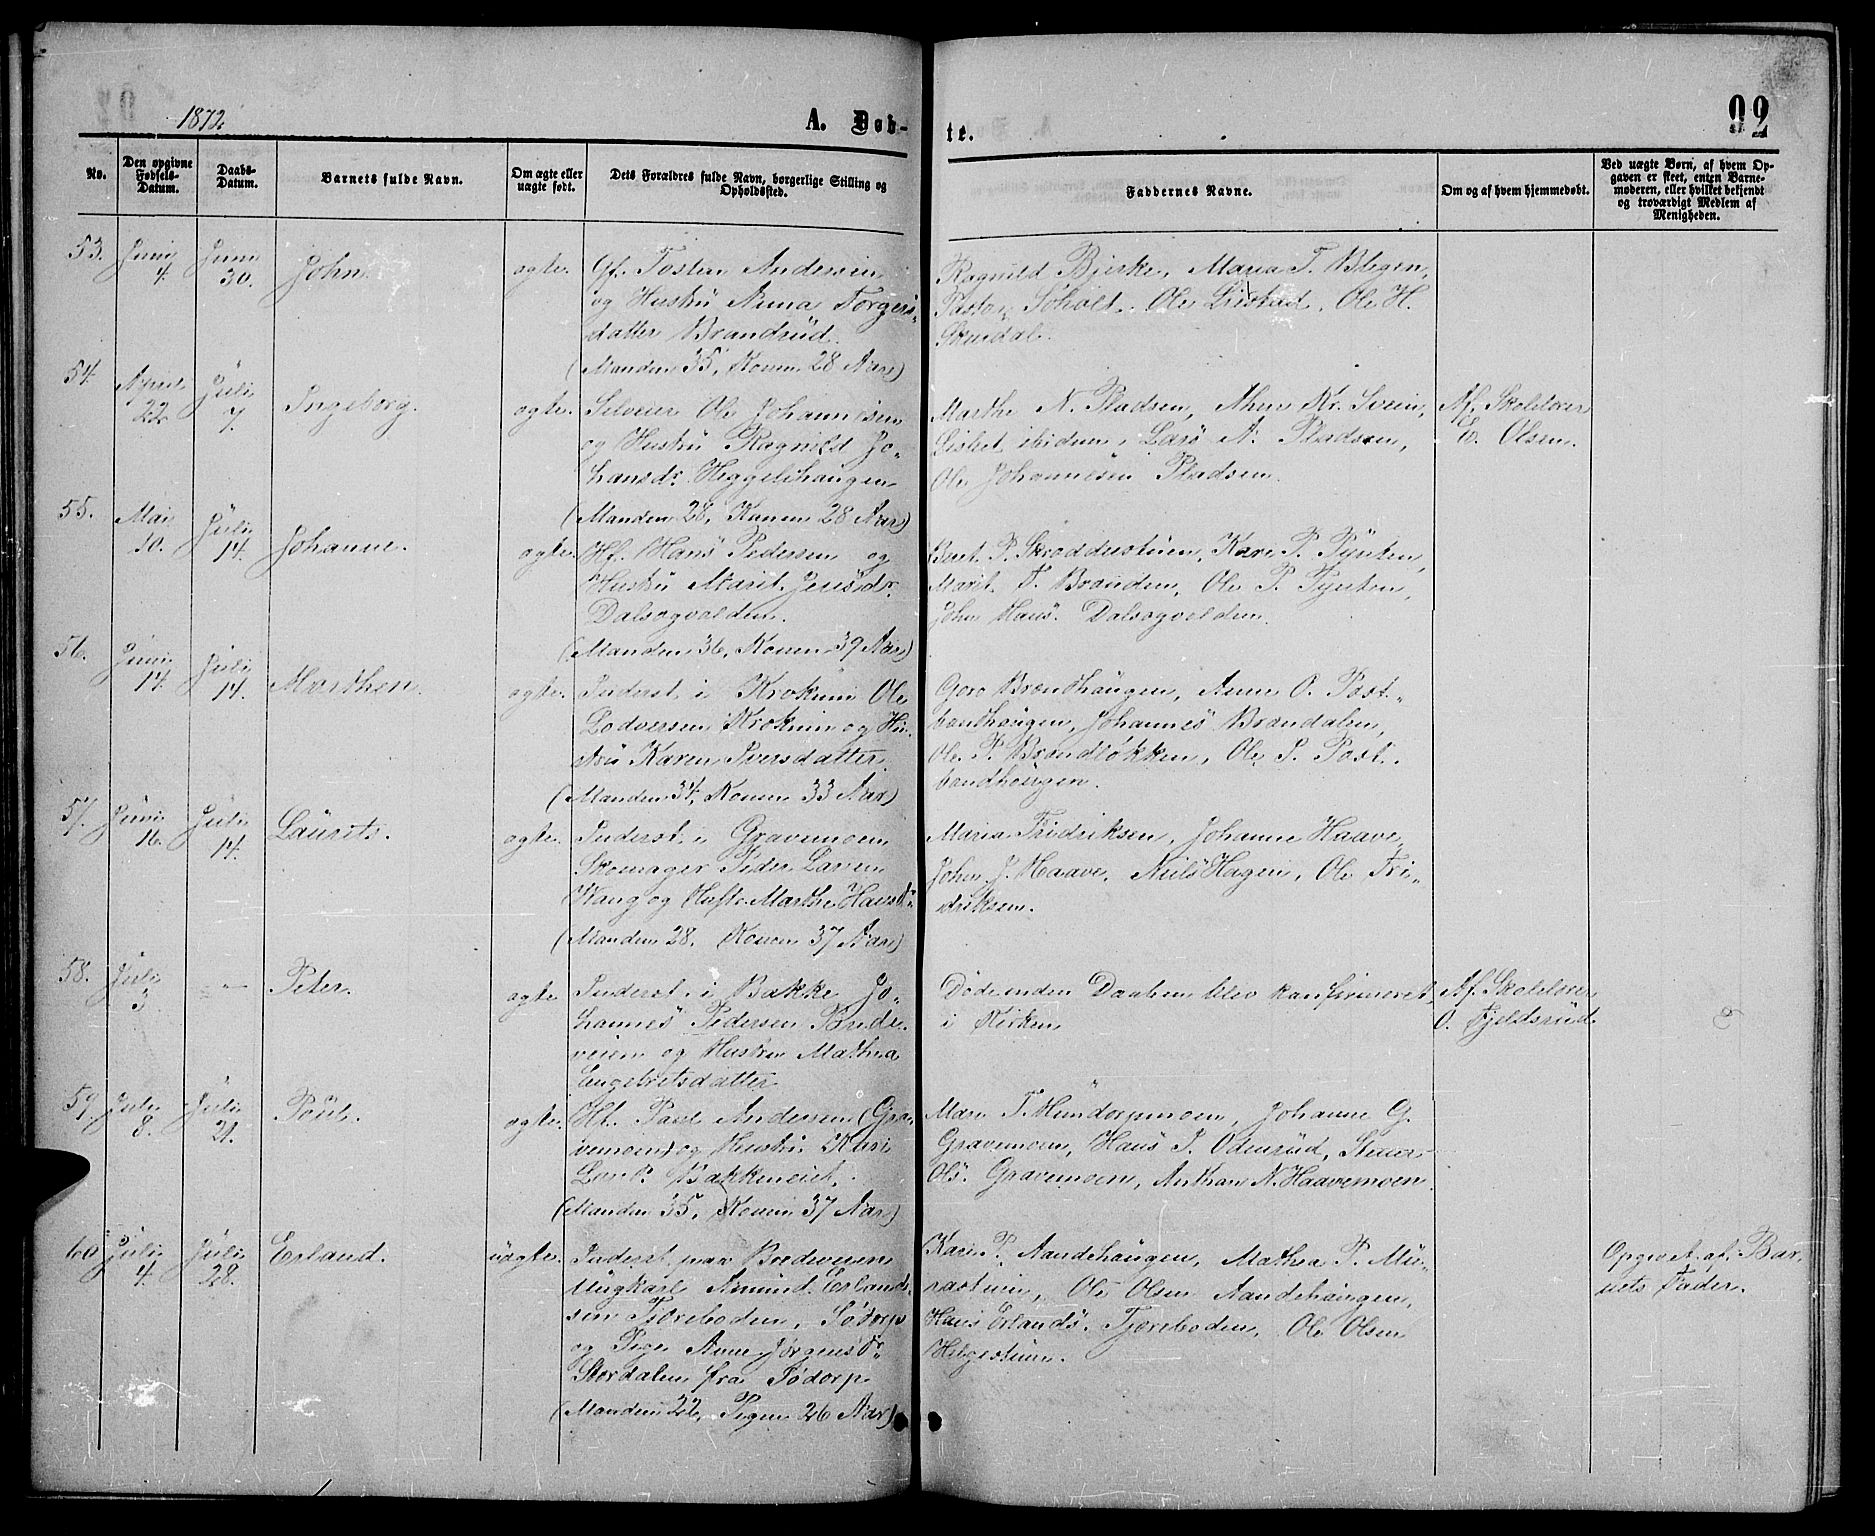 1872.
A. Døb-
te.
92
No.
Den opgivne Fødsels-Datum.
Daabs-Datum.
Barnets fulde Navn.
Om ægte eller uægte født.
Dets Forældres fulde Navn, borgerlige Stilling og Opholdssted.
Faddernes Navne.
Om og af hvem hjemmedøbt.
Ved uægte Børn, af hvem Opgaven er skeet, enten Barnemoderen, eller hvilket bekjendt og troværdigt Medlem af Menigheden.
53. Juni 4. Juni 30. John. ægte. Gf. Tosten Andersen
og Hustru Anna Torgers-
datter Brandrud.
(Manden 35, Konen 28 Aar)
Ragnild Bjerke, Maria T. Blegen,
Pastor Søholt. Ole Listad, Ole H.
Skurdal.
54. April 22. Juli 7. Ingeborg. ægte. Selveier Ole Johannesen
og Hustru Ragnild Jo-
hansdr. Heggelihaugen
(Manden 28, Konen 28 Aar)
Marthe N. Pladsen, Ahne Kr. Svein,
Lisbet ibidem, Lars N. Pladsen,
Ole Johannesen Pladsen.
Af Skolelærer
E. Olsen.
55. Mai 10. Juli 14. Johanne. ægte. Hf. Hans Pedersen og
Hustru Marit Jensdr.
Dalsegvolden.
(Manden 36, Konen 39 Aar)
Berit P. Skræddustuen, Kari P. Tynten,
Marit T. Brænden, Ole P. Tynten,
John Hans. Dalsegvolden.
56. Juni 14. Juli 14. Marthen. ægte. Inderst i Krokum Ole
Lodversen Krokum og Hu-
stru Karen Iversdatter.
(Manden 34, Konen 33 Aar)
Goro Brændhaugen, Anne O. Post-
bandhaugen, Johannes Brændalen,
Ole P. Brændløkken, Ole S. Post-
bandhaugen.
57. Juni 16. Juli 14. Laurits. ægte. Inderst i Gravemoen
Skomager Peder Larsen
Vang og Hustr. Marthe Hansdr.
(Manden 28. Konen 37 Aar)
Maria Fridriksen, Johanne Haave,
John J. Haave, Niels Hagen, Ole Fri-
driksen.
58. Juli 3 — Peter. ægte Inderst i Bakke Jo-
hannes Pedersen Brede-
veien og Hustru Mathea
Engebretsdatter
Døde inden Daaben blev konfirmeret
i Kirken
Af Skolelærer
O. Fjeldsrud.
59. Juli 8. Juli 21. Poul. ægte. Hf. Paul Andersen (Gra-
vemoen) og Hustru Kari
Larsdr. Bakkeneiet.
(Manden 35, Konen 37 Aar)
Mari T. Hundorpmoen, Johanne G.
Gravemoen, Hans J. Odenrud, Steener
Ols. Gravemoen, Anthon N. Haavemoen.
60. Juli 4. Juli 28. Erland. uægte. Inderst paa Bredeveien
Ungkarl Amund Erland-
sen Tjereboden, Sødorp
og Pige Anne Jørgensdr.
Stordalen fra Sødorp
(Manden 22, Pigen 26 Aar)
Kari P. Aandehaugen, Mathea P. Mu-
rastuen, Ole Olsen Aandehaugen,
Hans Erlands. Tjereboden, Ole Olsen
Helgestuen.
Opgivet af Bar-
nets Fader.